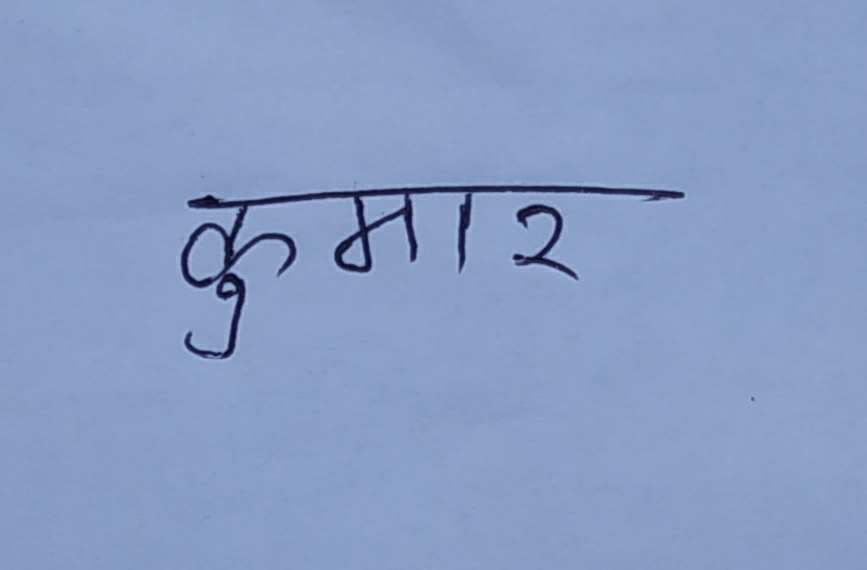 कुमार